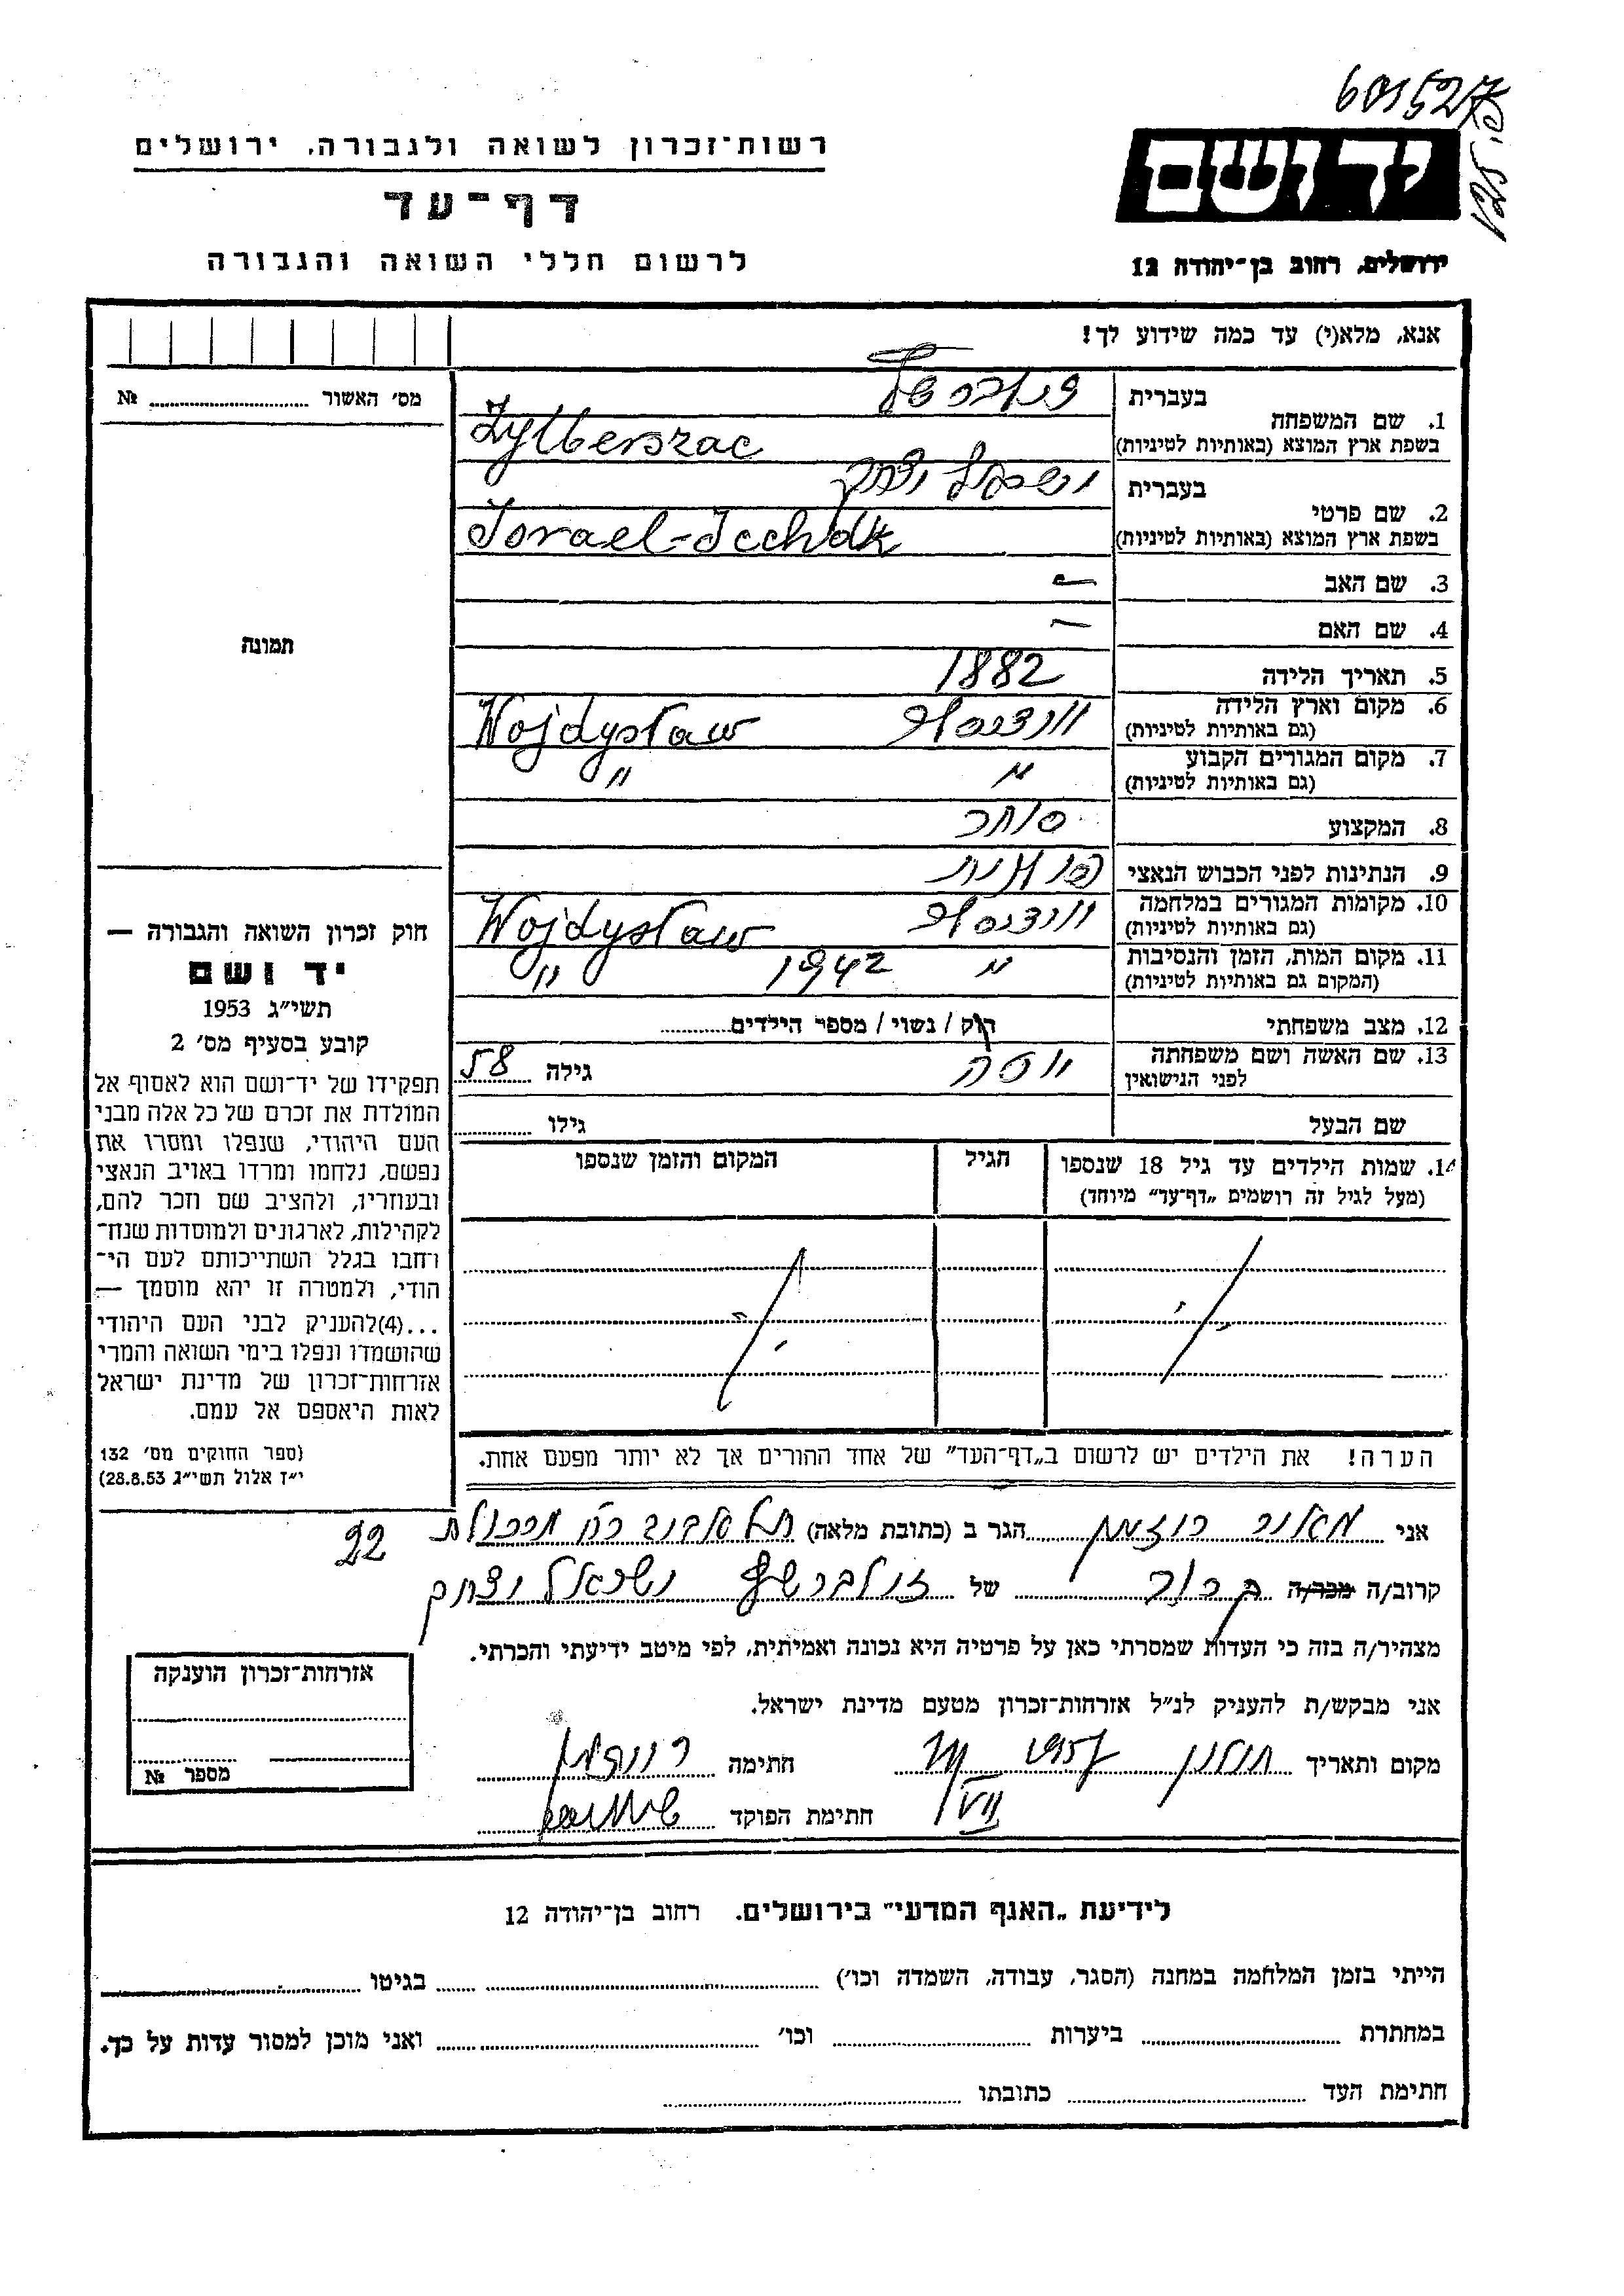 601527
רשות־זכרון לשואה ולגבורה, ירושלים
יד ושם
דף־עד
לרשום חללי השואה והגבורה
ירושלים, רחוב בן־יהודה 12
אנא, מלא(י) עד כמה שידוע לך!
מס׳ האשור № 
1. שם המשפחה
בעברית
בשפת ארץ המוצא (באותיות לטיניות) Zylberszac
2. שם פרטי
בעברית ישראל יצחק
בשפת ארץ המוצא (באותיות לטיניות) Israel-Icchak
3. שם האב —
4. שם האם —
תמונה
5. תאריך הלידה 1882
6. מקום וארץ הלידה
(גם באותיות לטיניות) Wojdysław
7. מקום המגורים הקבוע
(גם באותיות לטיניות) " "
8. המקצוע סוחר
9. הנתינות לפני הכבוש הנאצי פולנית
10. מקומות המגורים במלחמה
(גם באותיות לטיניות) Wojdysław
11. מקום המות, הזמן והנסיבות
(המקום גם באותיות לטיניות) " 1942 "
12. מצב משפחתי רוק / נשוי / מספר הילדים
13. שם האשה ושם משפחתה
לפני הנישואין גילה 58
שם הבעל גילו
14. שמות הילדים עד גיל 18 שנספו
(מעל לגיל זה רושמים „דף־עד״ מיוחד)
הגיל
המקום והזמן שנספו
חוק זכרון השואה והגבורה —
יד ושם
תשי״ג 1953
קובע בסעיף מס׳ 2
תפקידו של יד־ושם הוא לאסוף אל
המולדת את זכרם של כל אלה מבני
העם היהודי, שנפלו ומסרו את
נפשם, נלחמו ומרדו באויב הנאצי
ובעוזריו, ולהציב שם וזכר להם,
לקהילות, לארגונים ולמוסדות שנח־
רחבו בגלל השתייכותם לעם הי־
הודי, ולמטרה זו יהא מוסמך —
...(4)להעניק לבני העם היהודי
שהושמדו ונפלו בימי השואה והמרי
אזרחות־זכרון של מדינת ישראל
לאות היאספם אל עמם.
(ספר החוקים מס׳ 132
י״ז אלול תשי״ג 28.8.53)
הערה! את הילדים יש לרשום ב„דף־העד״ של אחד ההורים אך לא יותר מפעם אחת.
אני הגר ב (כתובת מלאה) תל אביב רח מרכולת 22
קרוב/ה מכר/ה קרוב של זילברשץ ישראל יצחק
מצהיר/ה בזה כי העדות שמסרתי כאן על פרטיה היא נכונה ואמיתית, לפי מיטב ידיעתי והכרתי.
אני מבקש/ת להעניק לנ״ל אזרחות־זכרון מטעם מדינת ישראל.
מקום ותאריך חולון חתימה
חתימת הפוקד
אזרחות־זכרון הוענקה
מספר №
לידיעת „האגף המדעי״ בירושלים. רחוב בן־יהודה 12
הייתי בזמן המלחמה במחנה (הסגר, עבודה, השמדה וכו׳) בגיטו
במחתרת ביערות וכו׳ ואני מוכן למסור עדות על כך.
חתימת העד כתובתו